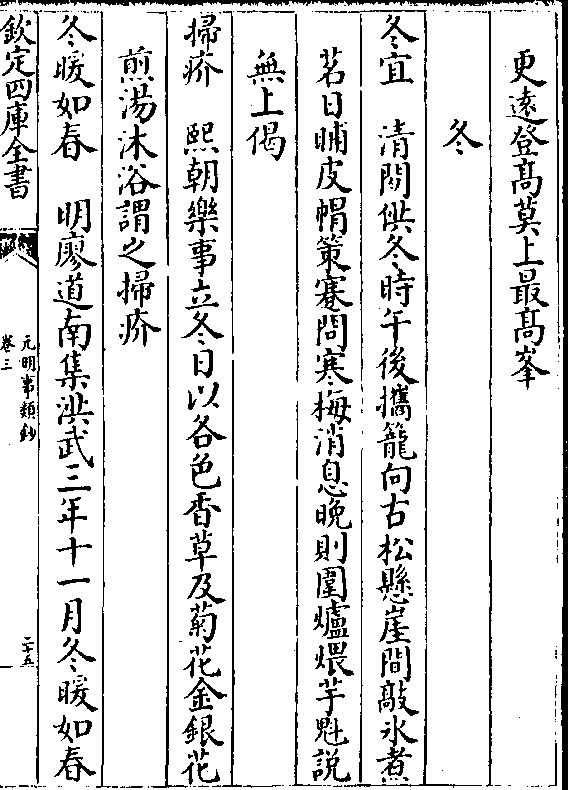 更遠登髙莫上最髙峯
冬
冬宜　清閑供冬時午後攜籠向古松懸崖間敲氷煮
茗日晡皮帽策蹇問寒梅消息晚則圍爐煨芋魁説
無上偈
掃疥　熙朝樂事立冬日以各色香草及菊花金銀花
煎湯沐浴謂之掃疥
冬暖如春　明廖道南集洪武三年十一月冬暖如春
欽定四庫全書
元明事類鈔
卷三
二十五